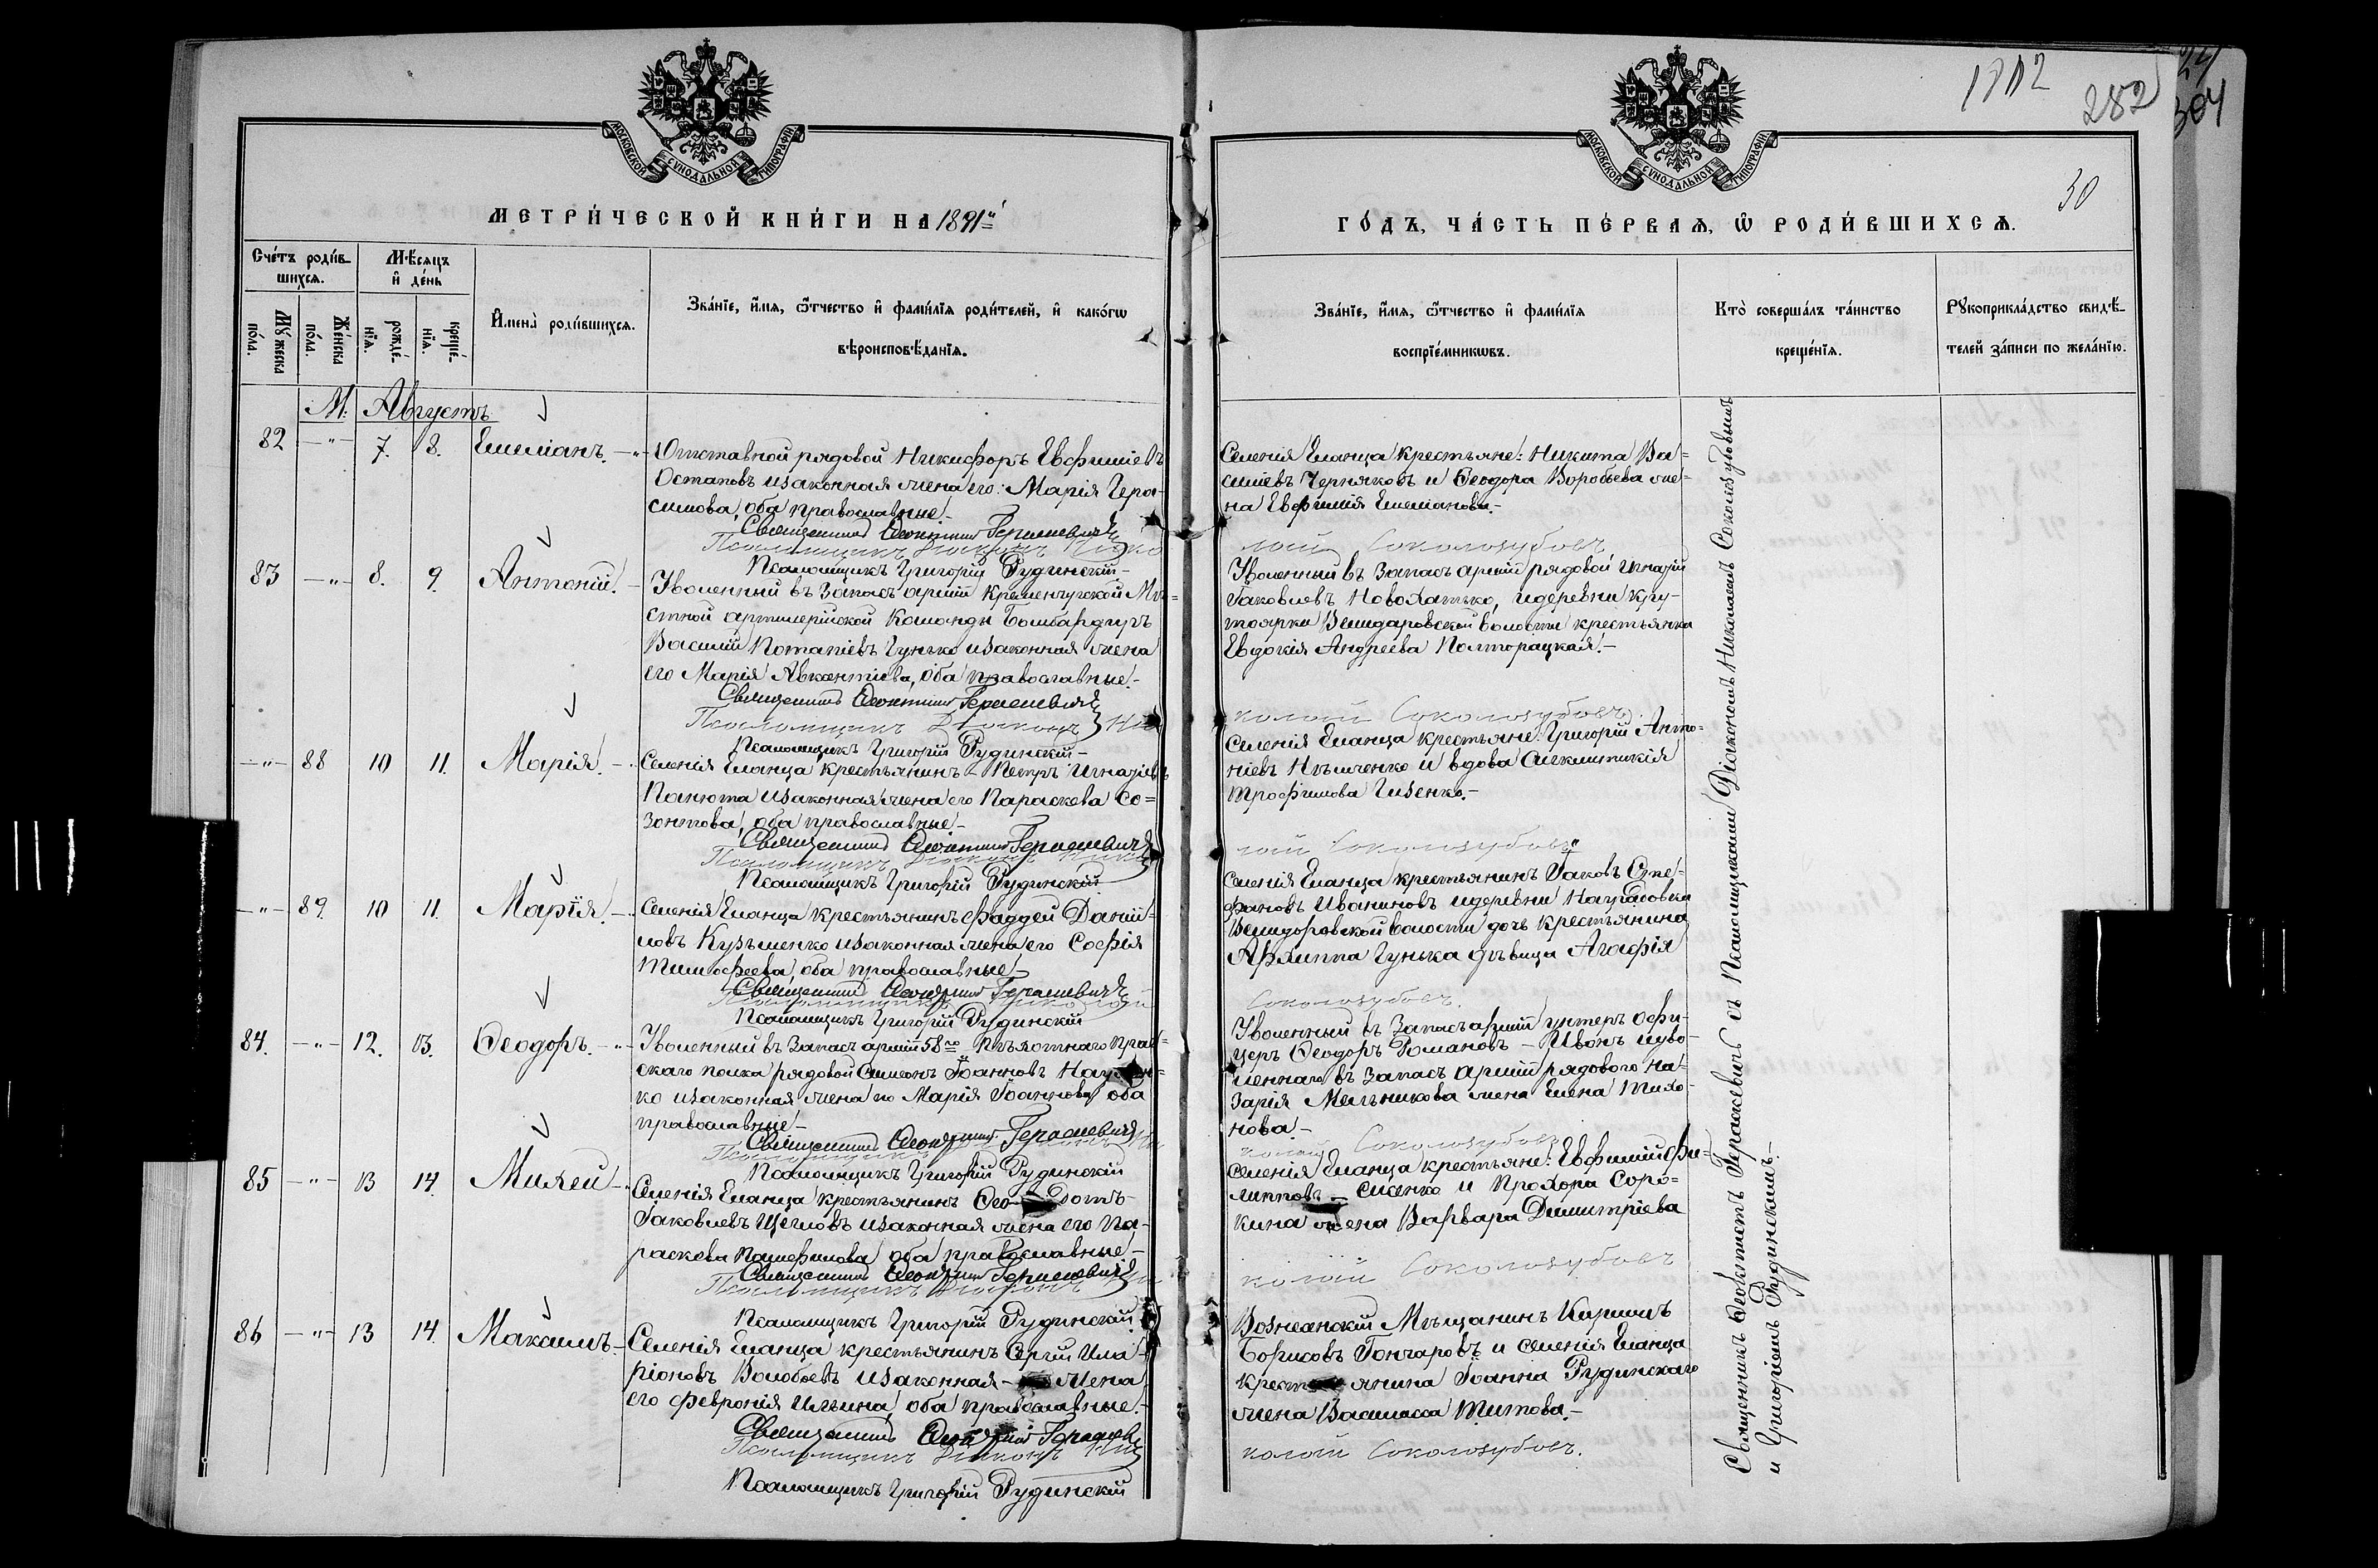 МОСКОВСКОЙ СУНОДАЛЬНОЙ ТИПОГРАФІИ
МЕТРИ́ЧЕСКОЙ КНИ́ГИ НА 1891й
Сче́тъ роди́в-
шихся.
Мѣ́сяцъ
и҆ де́нь
Му́жеска по́ла.
Же́нска по́ла.
рожде́-нїя.
креще́-нїя.
И҆мена̀ роди́вшихся.
Зва́нїе, и҆́мя, ѿтчество и҆ фами́лїя роди́телей, и҆ како́гѡ
вѣроисповѣ́данїя.
М. Августъ
82 —"— 7. 8. Емеліанъ. —"— Отставной рядовой Никифоръ Евфиміевъ
Остаповъ и законная жена его: Марія Гера-
симова, оба православные.
Священникъ Ѳеоктистъ Герасиевичъ
Псаломщикъ Діаконъ Нико
Псаломщикъ Григорій Рудинскій
83 —"— 8. 9. Антоній. Уволенный въ запасъ арміи Кременчугской Мѣ=
стной артилерійской команды Бомбардиръ
Василій Потапіевъ Гунько и законная жена
его Марія Авксентіева, оба православные.
Священникъ Ѳеоктистъ Герасиевичъ
Псаломщикъ Діаконъ Ни
Псаломщикъ Григорій Рудинскій
—"— 88 10 11. Марія. Селенія Еланца крестьянинъ Петръ Игнатіевъ
Панюта и законная жена его Параскева Со=
зонтова, оба православные
Священникъ Ѳеоктистъ Герасиевичъ
Псаломщикъ Діаконъ Нико
Псаломщикъ Григорій Рудинскій
—"— 89. 10 11. Марія Селенія Еланца крестьянинъ Фаддей Даніи=
ловъ Кузьменко и законная жена его Софія
Тимофеева, оба православные
Священникъ Ѳеоктистъ Герасиевичъ
Псаломщикъ Николай
Псаломщикъ Григорій Рудинскій
84. —"— 12. 13. Ѳеодоръ. —"— Уволенный въ запасъ арміи 58го Пѣхотнаго Праг=
скаго полка рядовой Симеонъ Іоанновъ
ко и законная жена его Марія Іоаннова, оба
православные
Священникъ Ѳеоктистъ Герасиевичъ
Псаломщикъ Ни
Псаломщикъ Григорій Рудинскій
85 —"— 13 14. Михей Селенія Еланца крестьянинъ Ѳео-дотъ
Іаковлевъ Щегловъ и законная жена его Па-
раскева Памфилова, оба православные
Священникъ Ѳеоктистъ Герасиевичъ
Псаломщикъ Діаконъ Ни
Псаломщикъ Григорій Рудинскій
86 —"— 13 14. Максимъ. Селенія Еланца крестьянинъ Сергій Ила-
ріоновъ Волобоевъ и законная жена
его Февронія Ильина, оба православные.
Священникъ Ѳеоктистъ Герасиев
Псаломщикъ Діаконъ Ни
Псаломщикъ Григорій Рудинскій
282
304
30
МОСКОВСКОЙ СУНОДАЛЬНОЙ ТИПОГРАФІИ
ГО́ДЪ, ЧА́СТЬ ПЕ́РВАЯ, Ѡ҆ РОДИ́ВШИХСЯ.
Зва́нїе, и҆́мя, ѿтчество и҆ фами́лїя
воспрїе́мникѡвъ.
Кто̀ соверша́лъ та́инство
креще́нїя.
Рꙋкоприкла́дство свидѣ́-
телей за́писи по жела́нїю.
Селенія Еланца крестьяне: Никита Ва=
силіевъ Черняковъ и Ѳеодора Воробьева же=
на Евфимія Емеліанова.
лай Соколозубовъ
Уволенный въ запасъ арміи рядовой Игнатій
Іаковлевъ Новохатько, и деревни Кру-
тоярки Велидаровской волости крестьянка
Евдокія Андреева Полторацкая.
колай Соколозубовъ
Селенія Еланца крестьяне: Григорій Анто=
ніевъ Нѣмченко и вдова Синклитикія
Трофимова Гизенко.
лай Соколозубовъ
Селенія Еланца крестьянинъ Іаковъ Сте=
фановъ Иваниновъ и деревни
Велидаровской волости дочь крестьянина
Архиппа Гунька дѣвица Агафія
Соколозубовъ.
Уволенный въ запасъ арміи унтеръ офи-
церъ Ѳеодоръ Романовъ — Ивонъ и уво-
леннаго въ запасъ арміи рядового На-
зарія Мельникова жена Елена Тихо-
нова.
колай Соколозубовъ
Селенія Еланца крестьяне: Евфимій Фи=
липповъ — и Прохора Соро=
кина жена Варвара Димитріева
колай Соколозубовъ
Вознесенскій Мѣщанинъ Кириллъ
Борисовъ Гончаровъ и селенія Еланца
крестьянина Іоанна Рудинскаго
жена Василисса Титова.
колай Соколозубовъ.
Священникъ Ѳеоктистъ Герасиевичъ съ Псаломщиками Діакономъ Николаемъ Соколозубовымъ
и Григоріемъ Рудинскимъ.